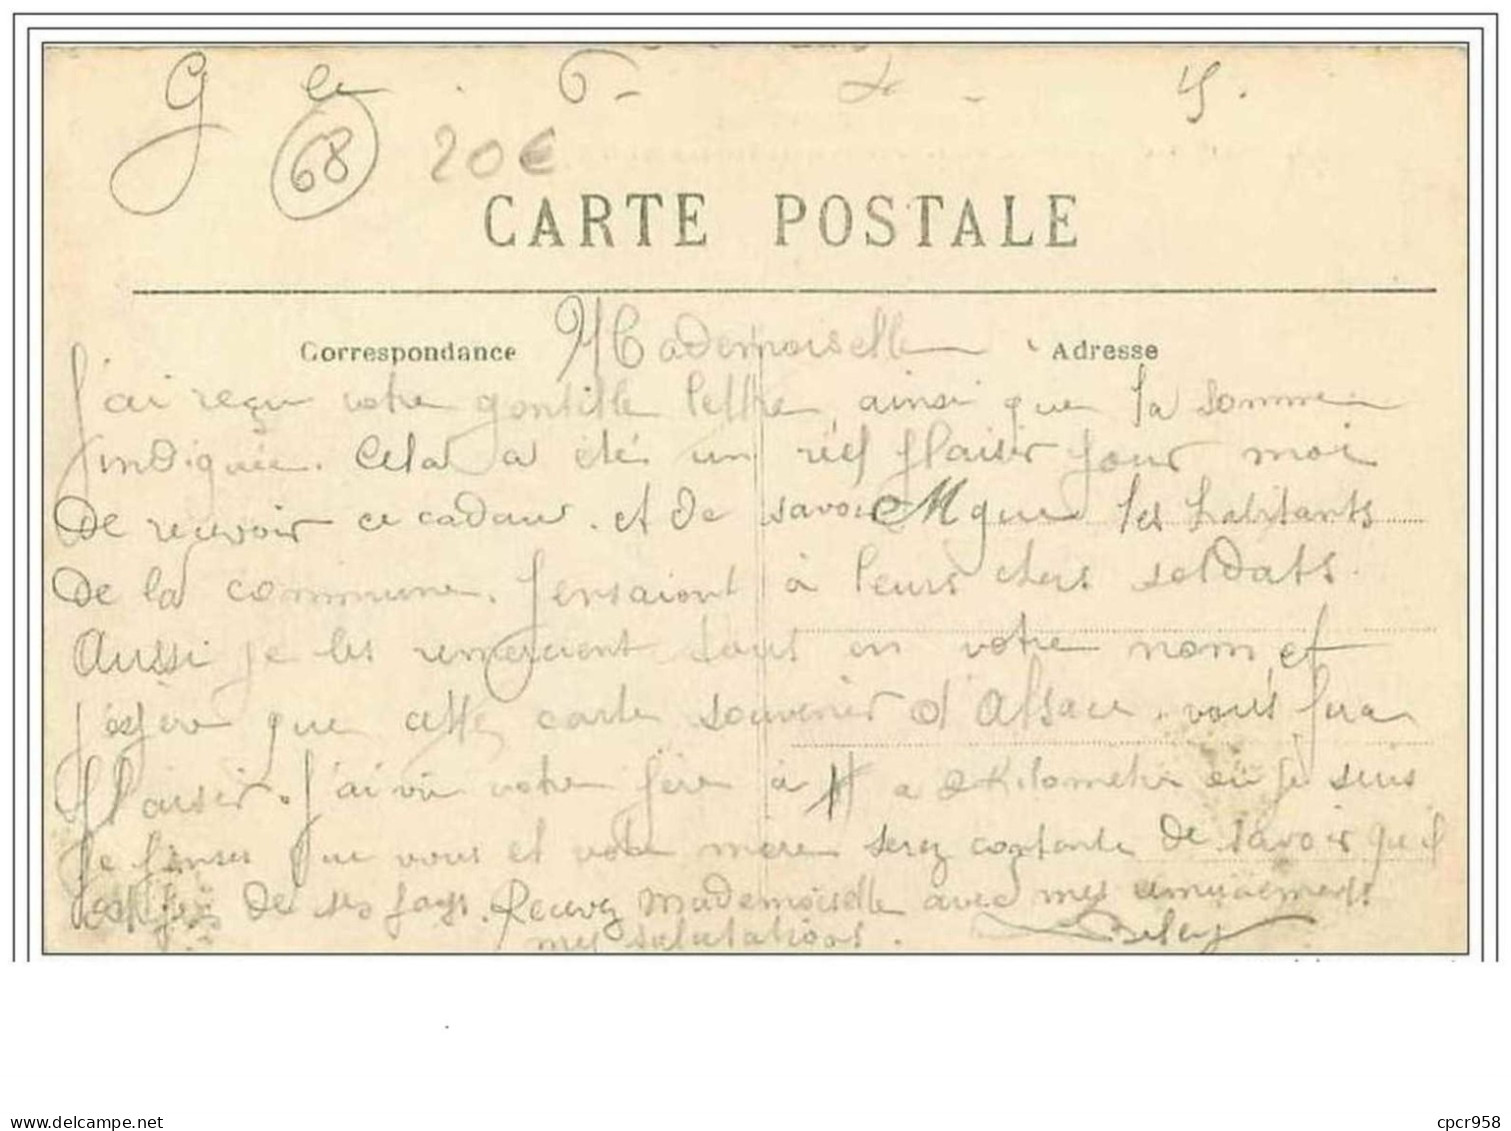 G le 6 - 4 - 15.
68 20€
CARTE POSTALE
Correspondance Mademoiselle Adresse
J'ai reçu votre gentille lettre, ainsi que la somme
indiquée. Cela a été un réel plaisir pour moi
de recevoir ce cadau. et de savoir que les habitants
de la commune. pensaiont à leurs chers soldats.
Aussi je les remercient tous en votre nom et
j'espère que cette carte souvenir d'Alsace. vous fera
plaisir. J'ai vu votre frère à 2 Kilometre où je suis
Je penses que vous et votre mère serez contente de savoir qu'il
de ses pays. Recevez Mademoiselle avec mes
mes salutations.
cpcr958